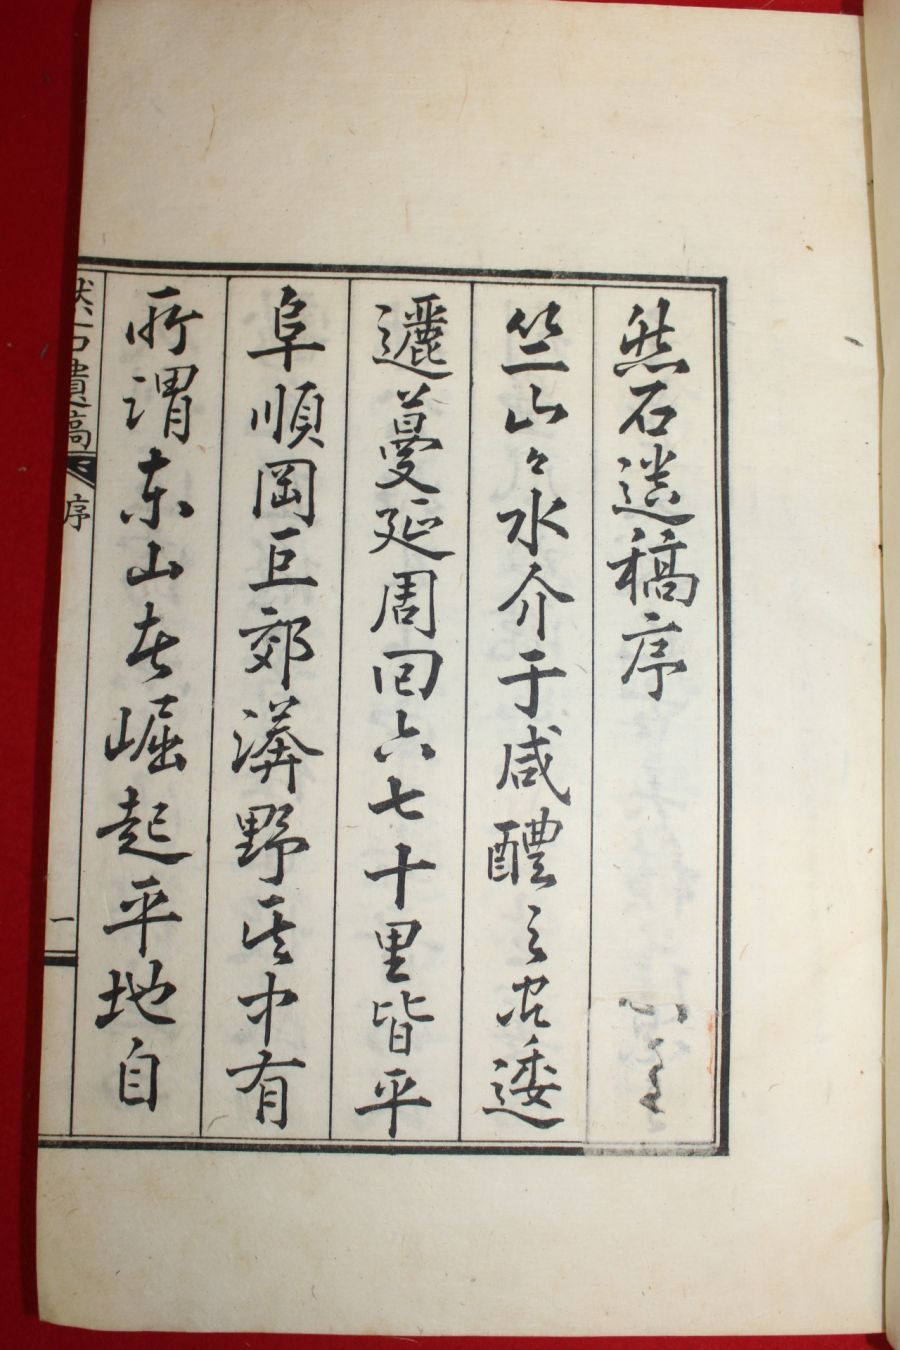 然石遺稿序
竺山々水介于咸醴之交逶
邐蔓延周回六七十里皆平
阜順岡巨郊漭野其中有
所謂東山者崛起平地自
然石遺稿
序
一